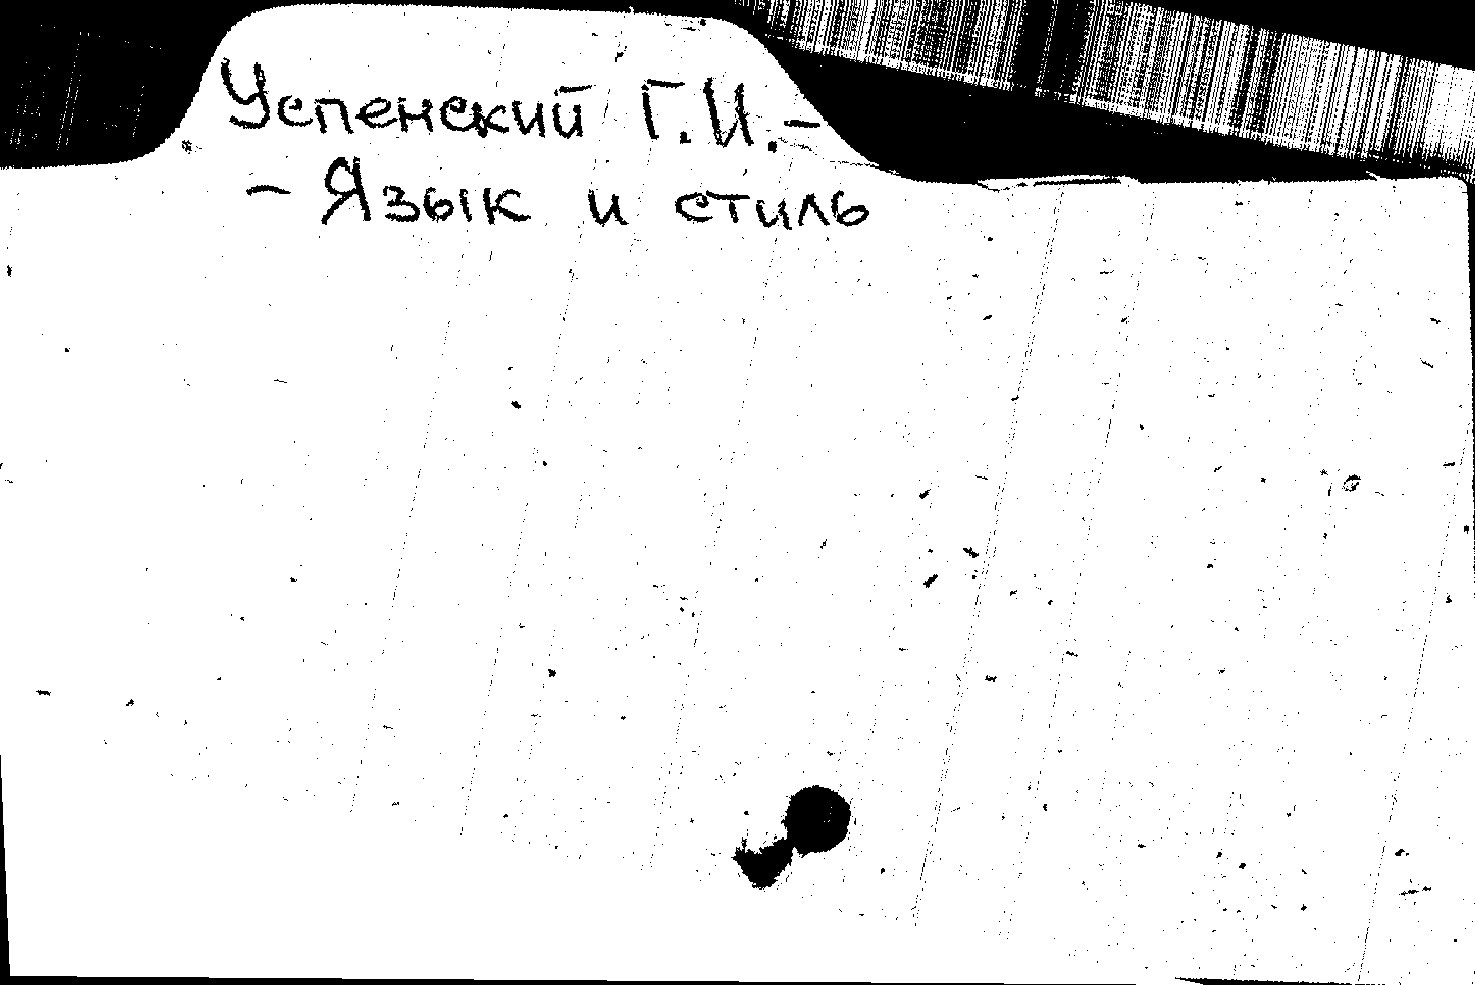 Успенский Г.И.-
- Язык и стиль